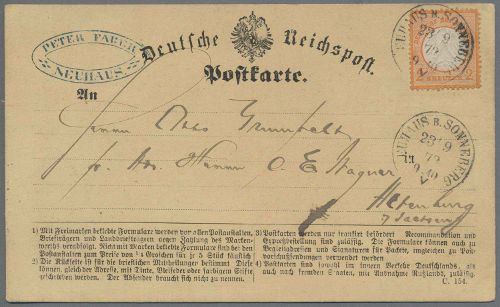 PETER FABER
NEUHAUS
Deutsche Reichspost.
Postkarte.
NEUHAUS B. SONNEBERG
23 9
72
KREUZER 2
An
Herrn Otto
NEUHAUS B. SONNEBERG
23 9
72
in
pr. Adr. Herrn O. E. Wagner
Altenburg
1) Mit Freimarken beklebte Formulare werden von allen Postanstalten, Briefträgern und Landbriefträgern gegen Zahlung des Markenwerths verabfolgt. Nicht mit Marken beklebte Formulare sind bei den Postanstalten zum Preise von ¼ Groschen für je 5 Stück käuflich
2) Die Rückseite ist für die brieflichen Mittheilungen bestimmt. Diese können, gleich der Adresse, mit Dinte, Bleifeder oder farbigem Stifte geschrieben werden. Der Absender braucht sich nicht zu nennen.
3) Postkarten werden nur frankirt befördert. Recommandation und Expreßbestellung sind zulässig. Die Formulare können auch zu Begleitadressen und Signaturen für Packete, imgleichen zu Postvorschußsendungen verwendet werden.
4) Postkarten sind sowohl im innern Verkehr Deutschlands, als auch nach fremden Staaten, mit Ausnahme Rußlands, zulässig.
C. 154.